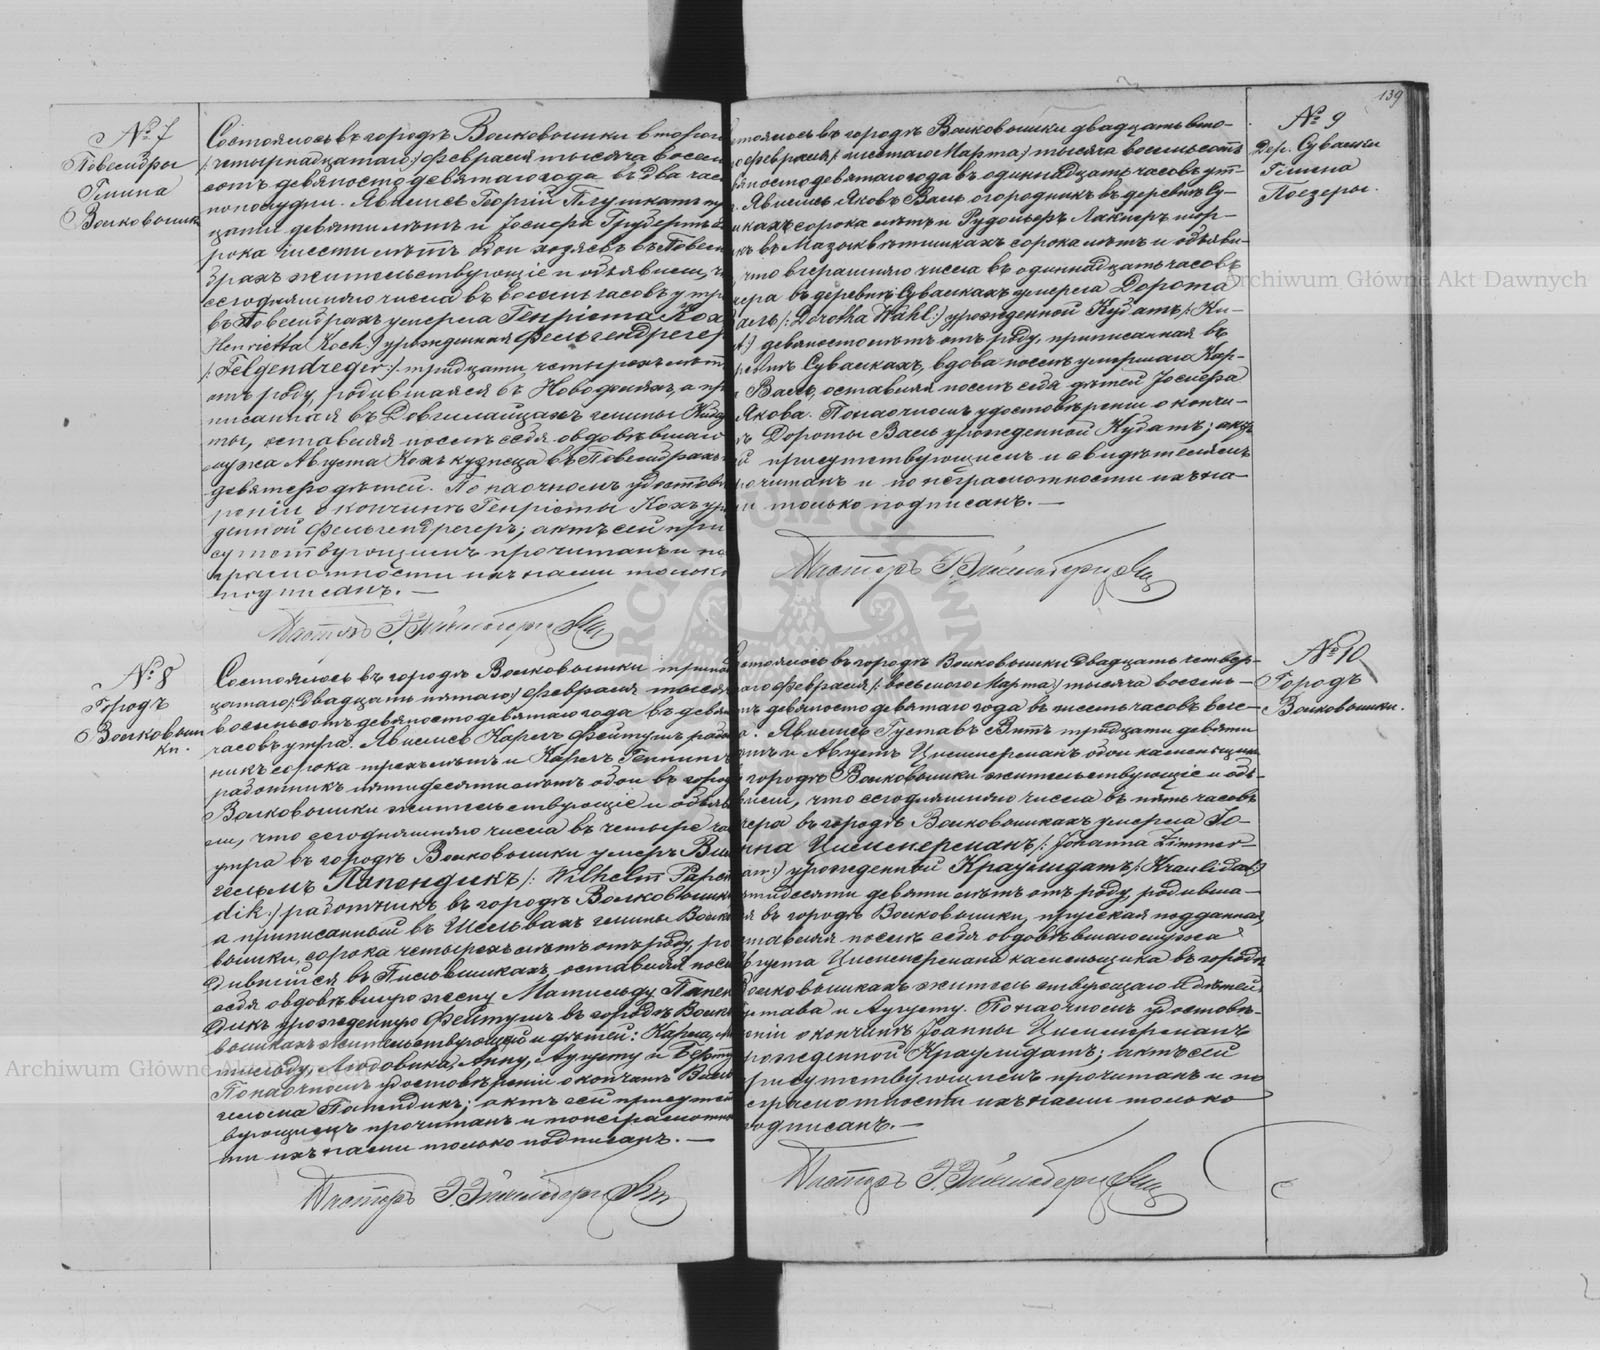 № 7
Повемдры
Гмина
Волковышк
Состоялось въ городѣ Волковышки второго
/:четырнадцатаго:/ Февраля тысяча восем
сотъ девяносто девятаго года въ два час
по полудни. Явились Георгій Плушкатъ
цати девяти лѣтъ и
рока шести лѣтъ оба хозяева въ Повем
драхъ жительствующіе и объявили, ч
сегодняшняго числа въ восемь часовъ утр
въ Повемдрахъ умерла Генріэта Кох
Henrietta Koch:/ урожденная Фельгендрегер
/:Felgendreger:/ тридцати четырехъ лѣт
отъ роду, родившаяся въ а при
писанная въ Довгилайцахъ гмины
ты, оставивъ послѣ себя овдовѣвшаго
мужа Августа Кохъ кузнеца въ Повемдрахъ
девятеро дѣтей. По наочномъ удостовѣ
реніи о кончинѣ Генріэты Кохъ уро
денной Фельгендрегеръ; актъ сей при
сутствующимъ прочитанъ и по
грамотности ихъ нами только
подписанъ. —
Пасторъ
№ 8
Городъ
Волковыш
ки.
Состоялось въ городѣ Волковышки тринад
цатаго /:двадцать пятаго:/ Февраля тысяч
восемьсотъ девяносто девятаго года въ девят
часовъ утра. Явились Карлъ Фейтушъ работ
никъ сорока трехъ лѣтъ и Карлъ
работникъ пятидесяти лѣтъ оба въ город
Волковышки жительствующіе и объяв
ли, что сегодняшняго числа въ четыре час
утра въ городѣ Волковышки умеръ Виль
гельмъ Папендикъ /:Wilhelm Papen
dik:/ работникъ въ городѣ Волковышки
а приписанный въ Шельвахъ гмины Волко
вышки, сорока четырехъ лѣтъ отъ роду, ро
дившійся въ оставивъ послѣ
себя овдовѣвшую жену Матильду Папен
дикъ урожденную Фейтушъ въ городѣ Волко
вышкахъ жительствующую и дѣтей: Карла, Ма
тильду, Людовика, Анну, Августу и Берту
По наочномъ удостовѣреніи о кончинѣ Виль
гельма Папендикъ; актъ сей присутст
вующимъ прочитанъ и по неграмотнос
ти ихъ нами только подписанъ. —
Пасторъ
139
№ 9
Дер. Сувалки
Гмина
Поезеры.
тоялось въ городѣ Волковышки двадцать вто-
о Февраля /:шестаго Марта:/ тысяча восемьсотъ
вяносто девятаго года въ одиннадцать часовъ ут-
Явились Яковъ Валь огородникъ въ деревнѣ Су-
лкахъ сорока лѣтъ и Рудольфъ Лакнеръ
въ сорока лѣтъ и объяви-
что вчерашняго числа въ одиннадцать часовъ
чера въ деревнѣ Сувалкахъ умерла Дорота
Валь /:Dorotha Wahl:/ урожденной Кудатъ /:Ku-
t:/ девяносто лѣтъ отъ роду, приписанная въ
ревнѣ Сувалкахъ, вдова послѣ умершаго Кар-
Валь, оставивъ послѣ себя дѣтей Іосифа
Якова. По наочномъ удостовѣреніи о кончи-
ѣ Дороты Валь урожденной Кудатъ; актъ
й присутствующимъ и свидѣтелямъ
рочитанъ и по неграмотности ихъ на-
и только подписанъ. —
Пасторъ
№ 10
Городъ
Волковышки.
стоялось въ городѣ Волковышки двадцать четвер-
таго Февраля /:восьмого Марта:/ тысяча восемь-
тъ девяносто девятаго года въ шесть часовъ вече-
а. Явились Густавъ Витъ тридцати девяти
лѣтъ и Августъ Циммерманъ оба каменьщики
городѣ Волковышки жительствующіе и объ-
вили, что сегодняшняго числа въ пять часовъ
чера въ городѣ Волковышкахъ умерла Іо-
нна Циммерманъ /:Johanna Zimmer-
ann:/ урожденной Краулидатъ /:Kraulidat:/
тидесяти девяти лѣтъ отъ роду, родивша-
я въ городѣ Волковышки, прусская подданная,
ставивъ послѣ себя овдовѣвшаго мужа
вгуста Циммермана каменьщика въ городѣ
олковышкахъ жительствующаго и дѣтей
устава и Августу. По наочномъ удостовѣ-
еніи о кончинѣ Іоанны Циммерманъ
рожденной Краулидатъ; актъ сей
рисутствующимъ прочитанъ и по
еграмотности ихъ нами только
одписанъ. —
Пасторъ
Archiwum Główne Akt Dawnych
Archiwum Główne